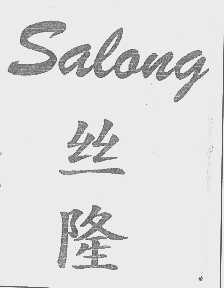 Salong
丝
隆